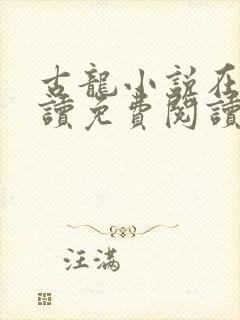 古龍小說在
讀免費閱讀
汪滿